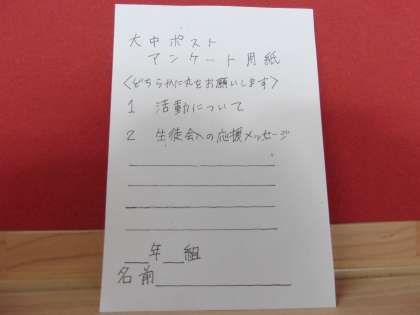 大中ポスト
アンケート用紙
〈どちらかに丸をお願いします〉
1 活動について
2 生徒会への応援メッセージ
___年___組
名前